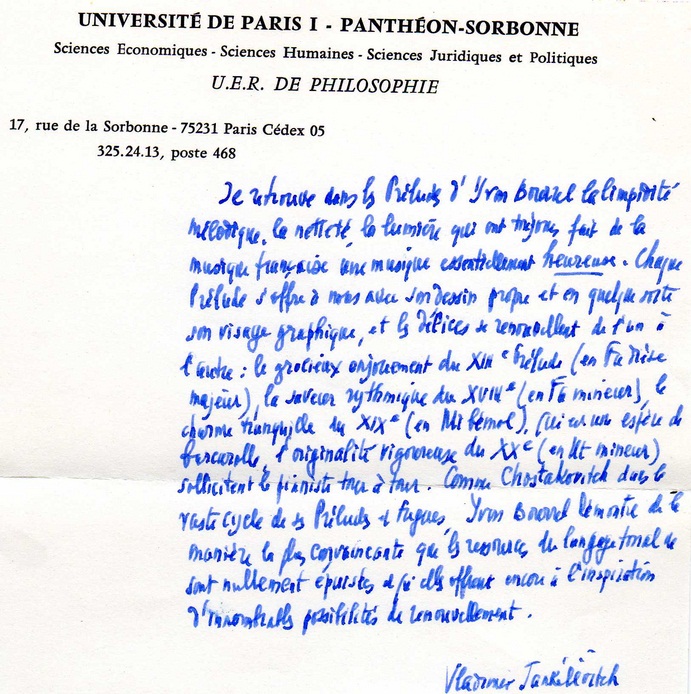 UNIVERSITÉ DE PARIS I - PANTHÉON-SORBONNE
Sciences Economiques - Sciences Humaines - Sciences Juridiques et Politiques
U.E.R. DE PHILOSOPHIE
17, rue de la Sorbonne - 75231 Paris Cédex 05
325.24.13, poste 468
Je retrouve dans les Préludes d'Yvon Bourrel la limpidité
mélodique, la netteté, la lumière qui ont toujours fait de la
musique française une musique essentiellement heureuse. Chaque
Prélude s'offre à nous avec son dessin propre et en quelque sorte
son visage graphique, et les délices se renouvellent de l'un à
l'autre : le gracieux enjouement du XIIIe Prélude (en Fa dièse
majeur), la saveur rythmique du XVIIIe (en Fa mineur), le
charme tranquille du XIXe (en Mi bémol), qui est une espèce de
barcarolle, l'originalité vigoureuse du XXe (en Ut mineur)
sollicitent le pianiste tour à tour. Comme Chostakovitch dans le
vaste cycle de ses Préludes et Fugues, Yvon Bourrel démontre de la
manière la plus convaincante que les ressources du langage tonal ne
sont nullement épuisées et qu'elles offrent encore à l'inspiration
d'innombrables possibilités de renouvellement.
Vladimir Jankélévitch